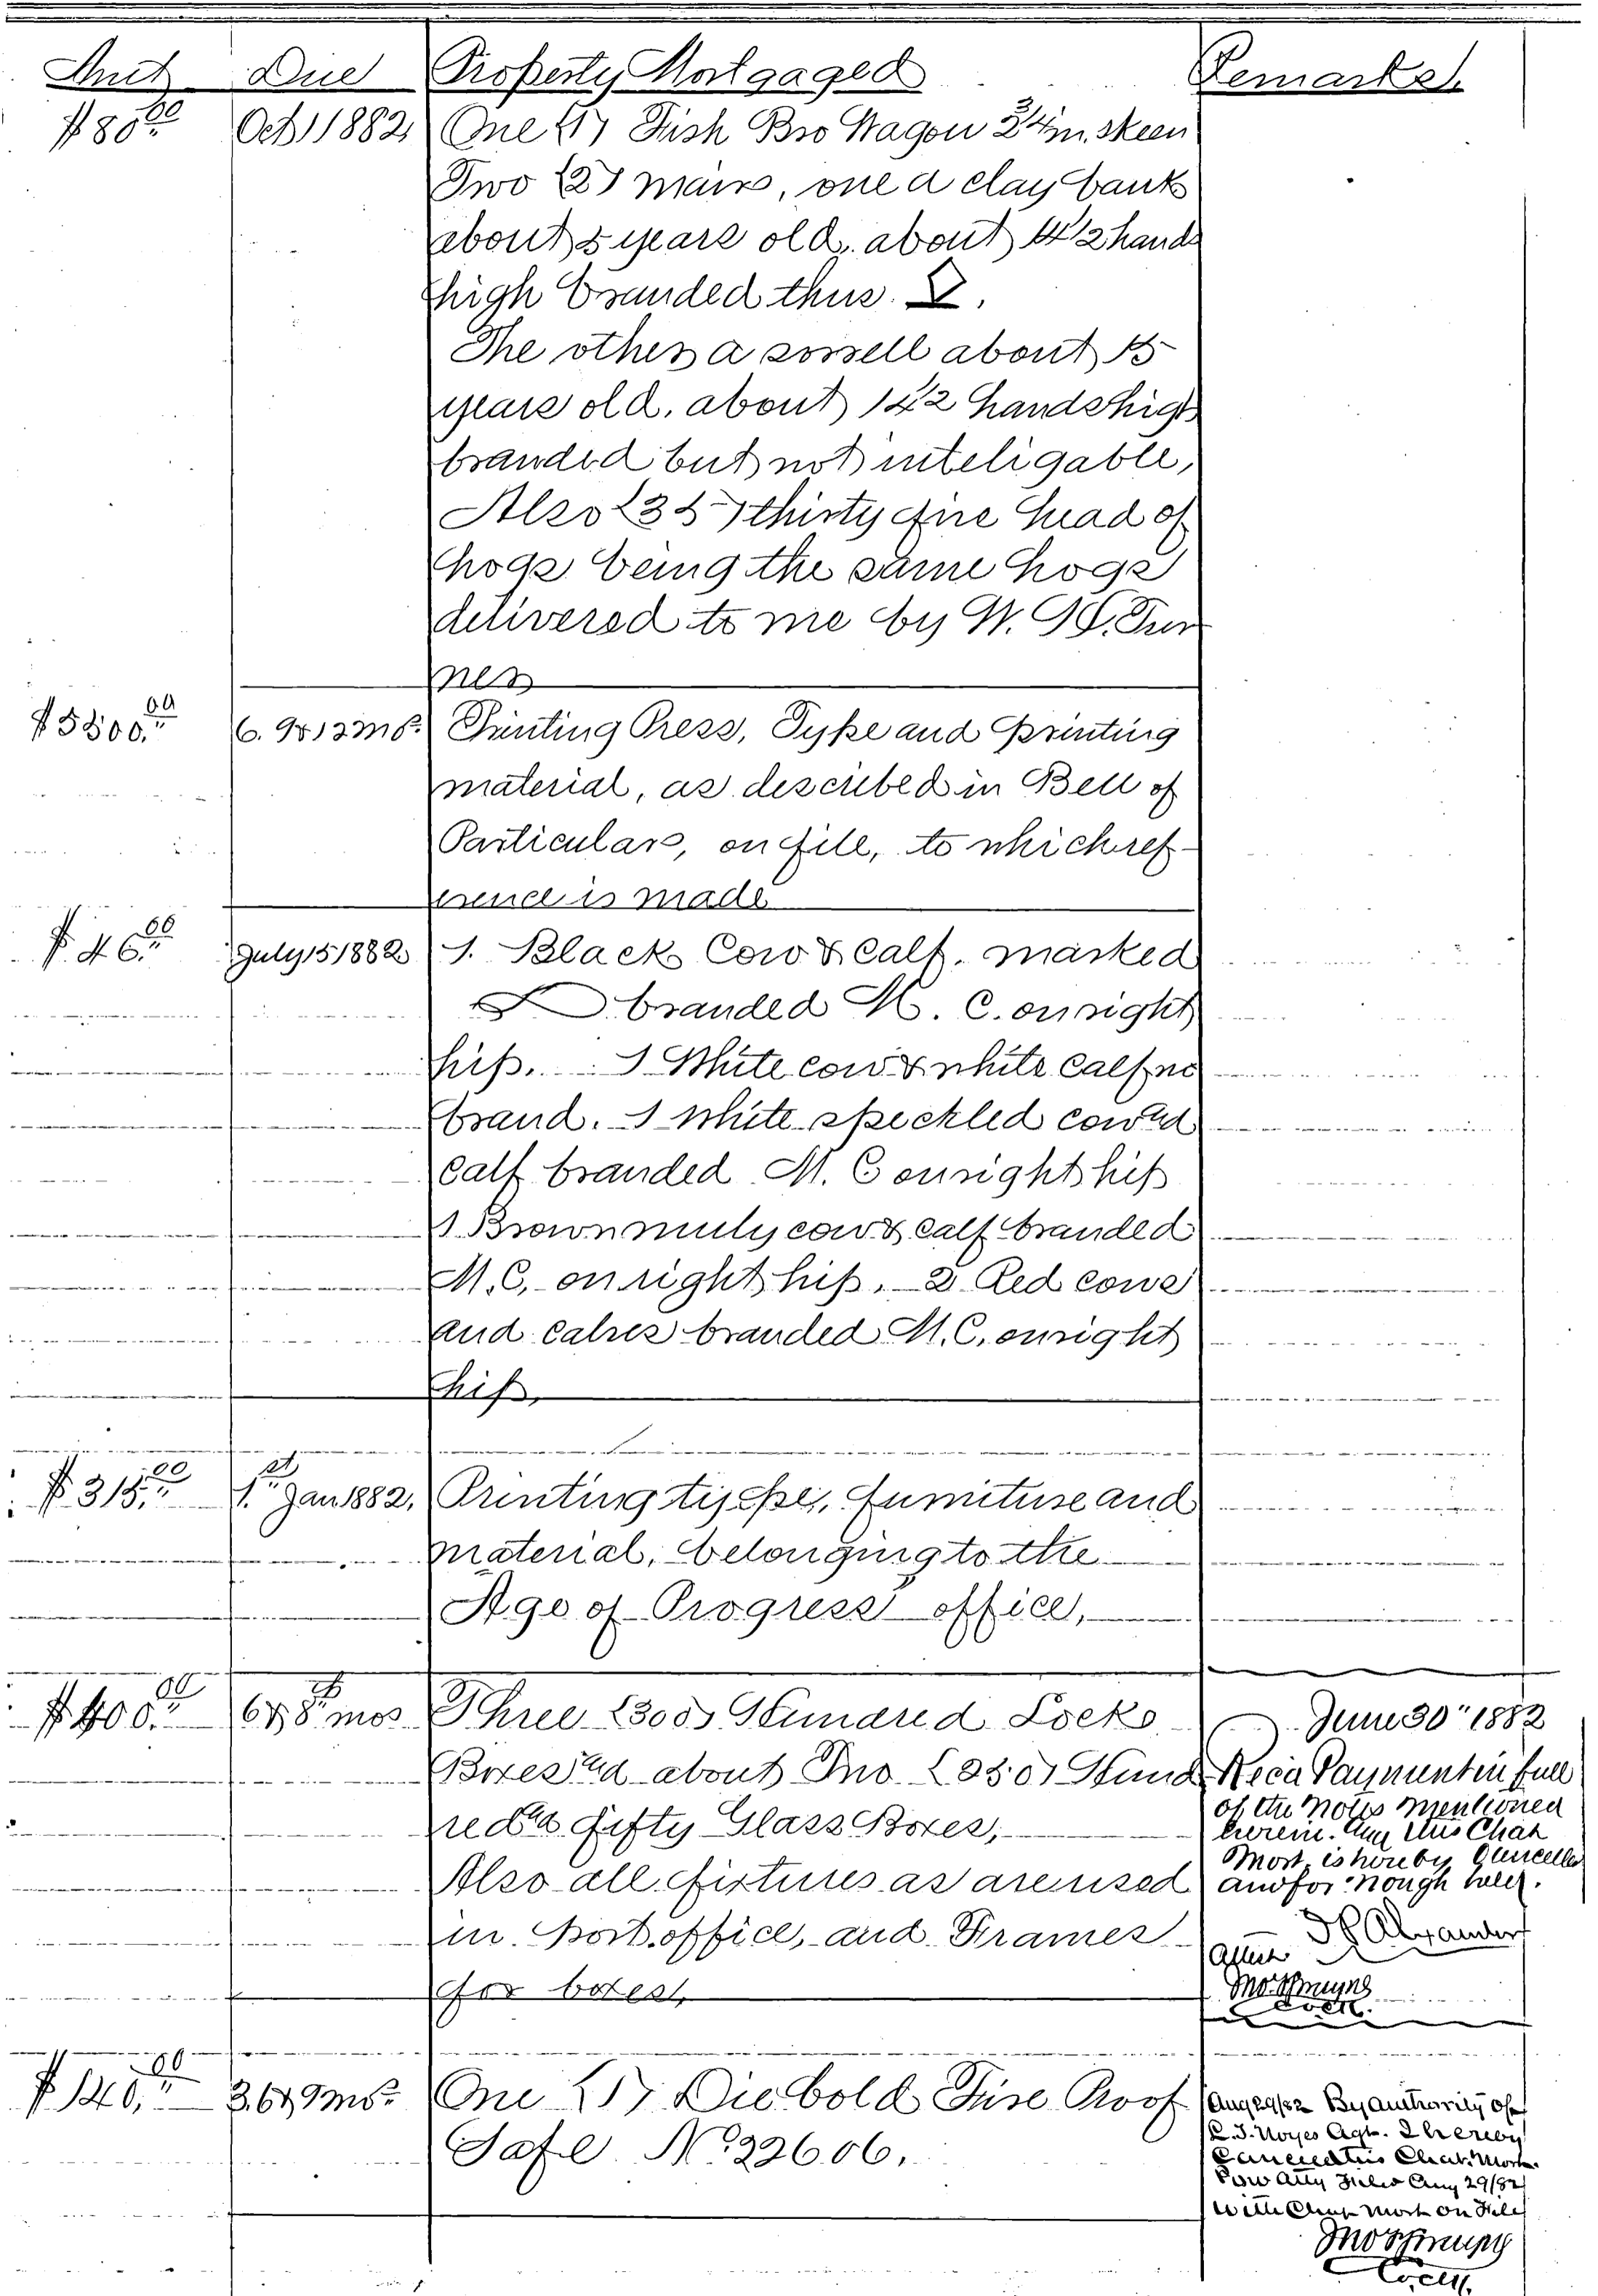 Amt Due Property Mortgaged Remarks
$80.00 Oct 1 1882 One (1) Fish Bro Wagon 3¼ in. skeen
Two (2) mairs, one a clay bank
about 5 years old, about 14½ hands
high branded thus.
The other a sorrell about 15
years old, about 14½ hands high
branded but not inteligable,
Also (35) thirty five head of
hogs being the same hogs
delivered to me by W. H. Tur
ner
$5500.00 6. 9 & 12 mo. Printing Press, Type and Printing
material, as described in Bill of
Particulars, on file, to which ref-
erence is made
$46.00 July 15 1882 1. Black Cow & Calf, marked
branded M. C. on right
hip. 1 White cow & white calf no
brand. 1 White speckled cow and
calf branded M. C on right hip
1 Brown muly cow & calf branded
M. C, on right hip. 2 Red cows
and calves branded M. C. on right
hip
$315.00 1st Jan 1882, Printing type, furniture and
material, belonging to the
Age of Progress office,
$400.00 6 & 8 mos Three (300) Hundred Locks June 30" 1882
Boxes and about Two (250) Hund Recd Payment in full
red & fifty Glass Boxes, of the Notes mentioned
herein. And this Chat
Mort. is hereby Cancelled
Also all fixtures as are used and for nough held.
in Post office, and Frames Alexander
for boxes, Attest
Clerk.
$140.00 3. 6 & 9 mo. One (1) Diebold Fire Proof Aug 29/82 By authority of
Safe No. 22606. Noyes Agt. I hereby
Cancel this Chat. Mort.
Pow Atty filed Aug 29/82
with Chat Mort on File
Clerk.